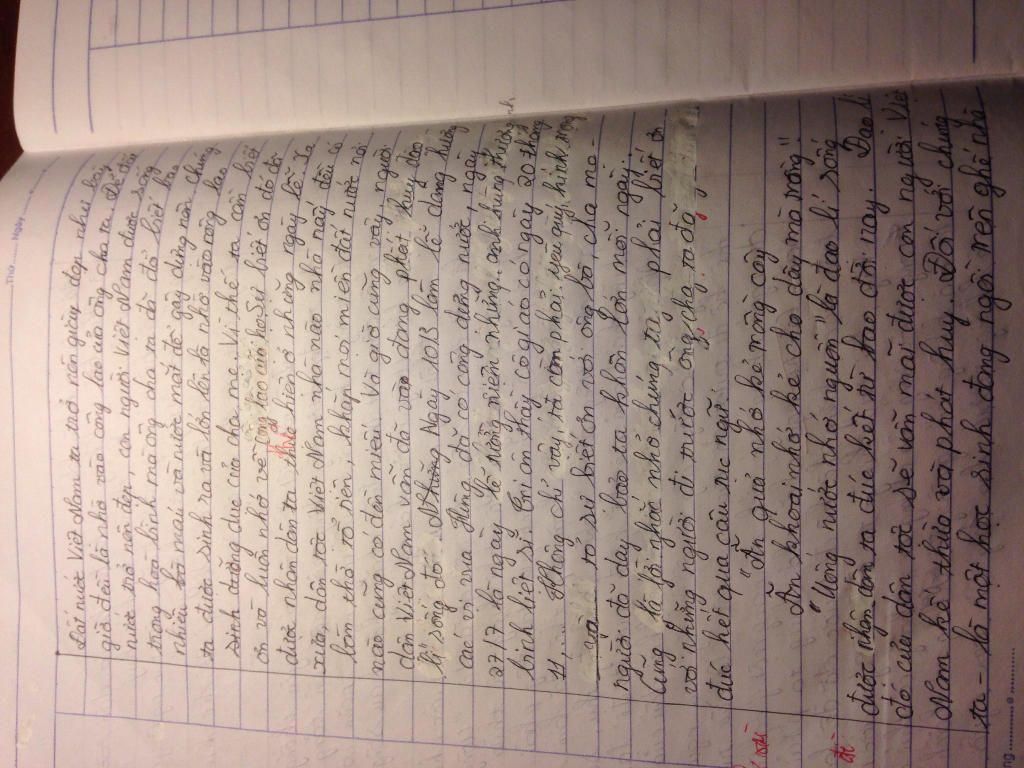 Thứ ........ Ngày ........
Đất nước Việt Nam ta trở nên giàu đẹp như bây
giờ đều là nhờ vào công lao của ông cha ta. Để đất
nước trở nên đẹp, con người Việt Nam được sống
trong hòa bình mà ông cha ta đã đổ biết bao
nhiêu mồ hôi và nước mắt để gây dựng nên chúng
ta được sinh ra và lớn lên là nhờ vào công lao
sinh dưỡng dục của cha mẹ. Vì thế ta cần biết
ơn và luôn nhớ về công lao của họ. Sự biết ơn đó đã
được nhân dân ta thể hiện ở những ngày lễ. Từ
xưa, dân tộc Việt Nam nhà nào nhà nấy đều có
bàn thờ tổ tiên, khắp mọi miền đất nước nơi
nào cũng có đền miếu. Và giờ cũng vậy, người
dân Việt Nam vẫn đã và đang phát huy đạo
lí sống đó. Những Ngày 10/3 làm lễ dâng hương
các vị vua Hùng đã có công dựng nước, ngày
27/7 là ngày lễ những anh hùng thương
binh liệt sĩ. Tri ân thầy cô giáo có ngày 20 tháng
11,... Không chỉ vậy, ta còn phải yêu quý, kính trọng
và tỏ sự biết ơn với ông bà, cha mẹ -
người đã dạy bảo ta khôn lớn mỗi ngày.
Cũng là lời nhắc nhở chúng ta phải biết ơn
với những người đi trước ông cha ta đã
đúc kết qua câu tục ngữ:
"Ăn quả nhớ kẻ trồng cây
Ăn khoai nhớ kẻ cho dây mà trồng"
"Uống nước nhớ nguồn" là đạo lí sống
được nhân dân ta đúc kết từ bao đời nay. Đạo lí
đó của dân tộc sẽ vẫn mãi được con người Việt
Nam kế thừa và phát huy. Đối với chúng
ta - là một học sinh đang ngồi trên ghế nhà